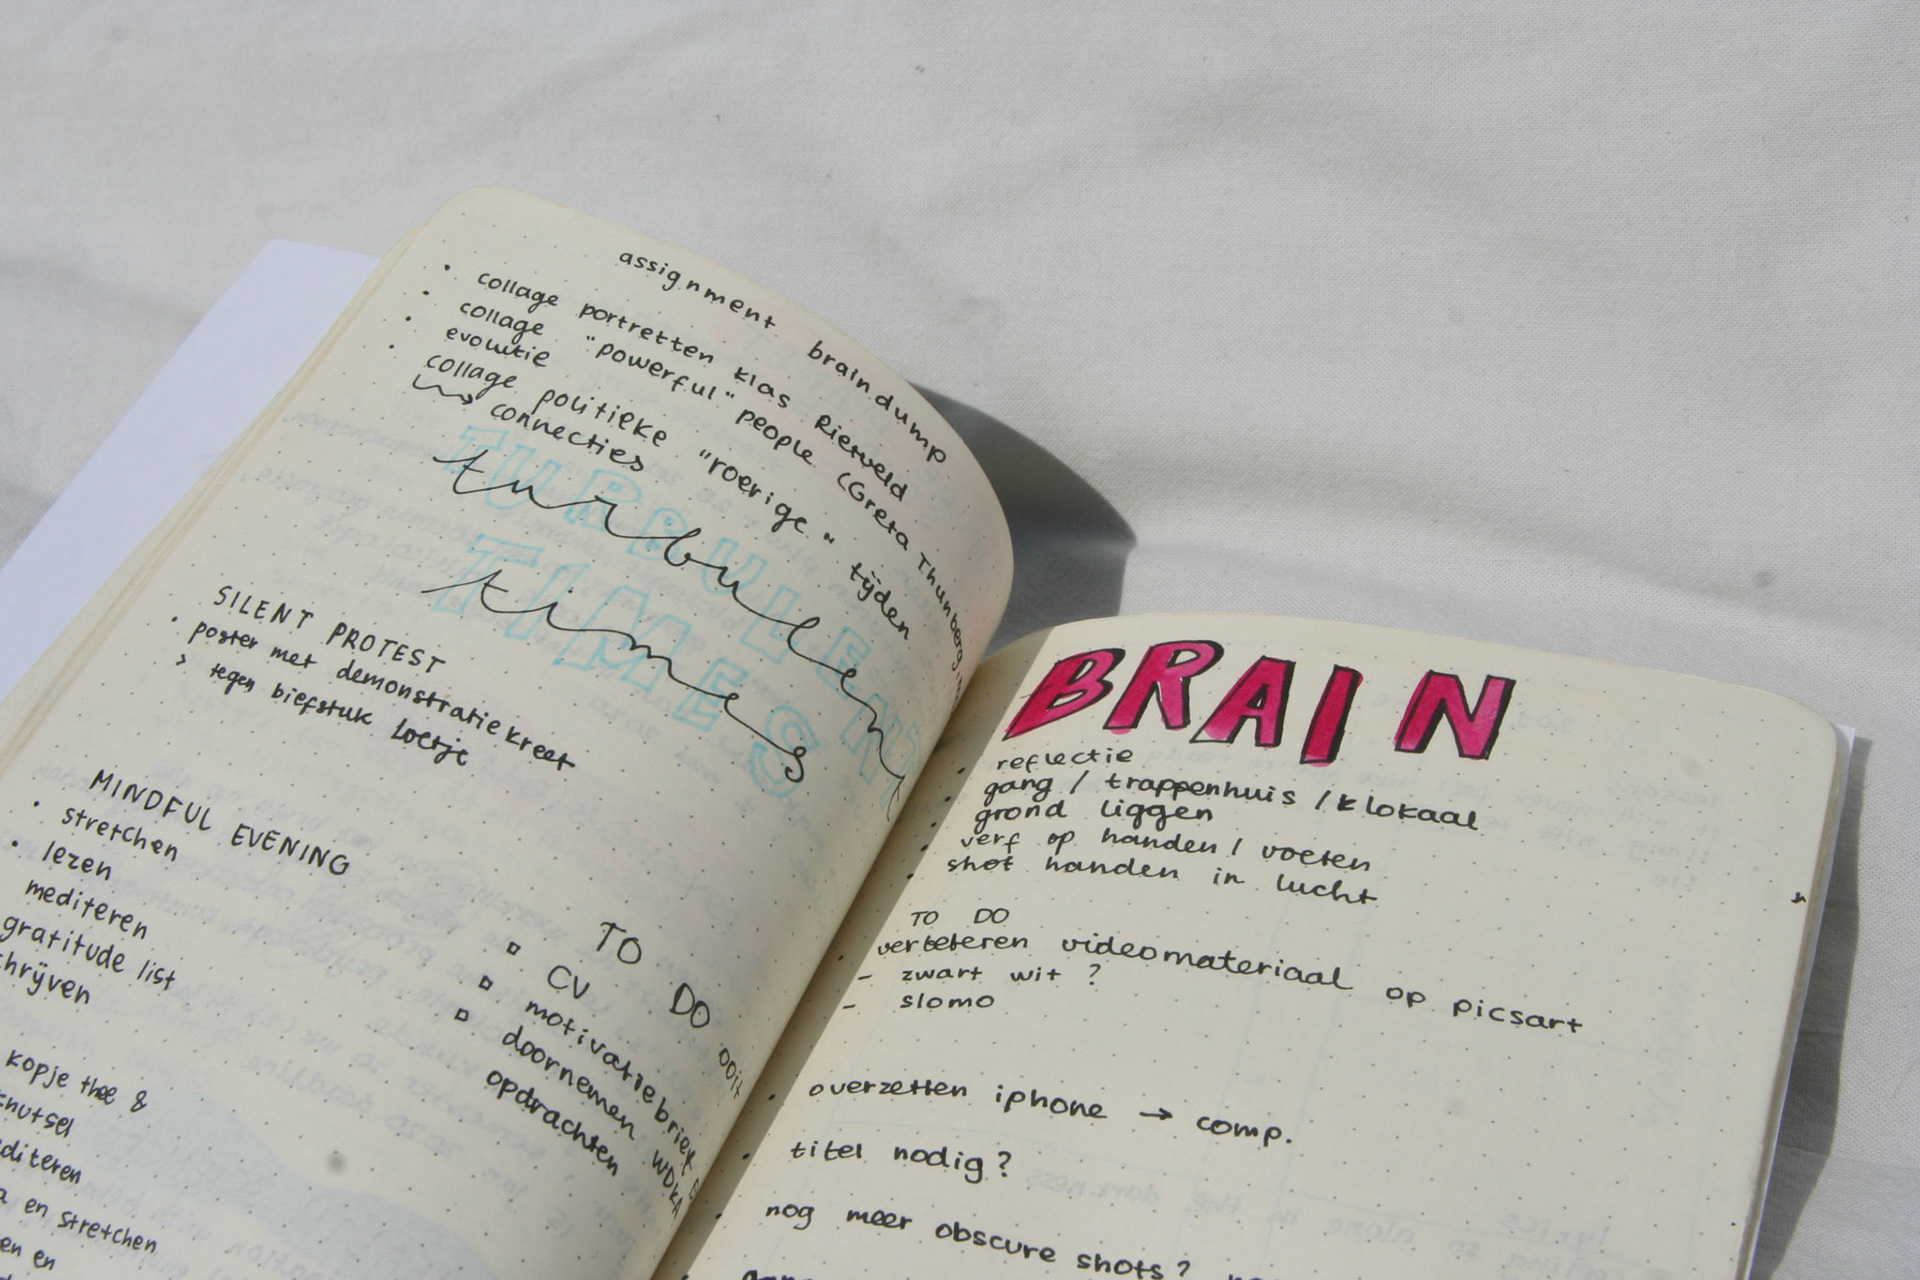 assignment braindump
• collage portretten klas Rietveld
• collage "powerful" people (Greta Thunberg
• evolutie
• collage politieke "roerige" tijden
connecties
TURBULENT
turbulent
TIMES
times
SILENT PROTEST
• poster met demonstratiekreet
> tegen biefstuk loetje
MINDFUL EVENING
• stretchen
• lezen
mediteren
gratitude list
hrijven
kopje thee &
nutsel
diteren
en stretchen
en en
TO DO
CV
motivatiebrief
doornemen WDKA
opdrachten
ooit
BRAIN
• reflectie
gang / trappenhuis / klokaal
• grond liggen
• verf op handen / voeten
• shot handen in lucht
TO DO
• verbeteren videomateriaal op picsart
- zwart wit ?
- slomo
• overzetten iphone → comp.
• titel nodig?
nog meer obscure shots?